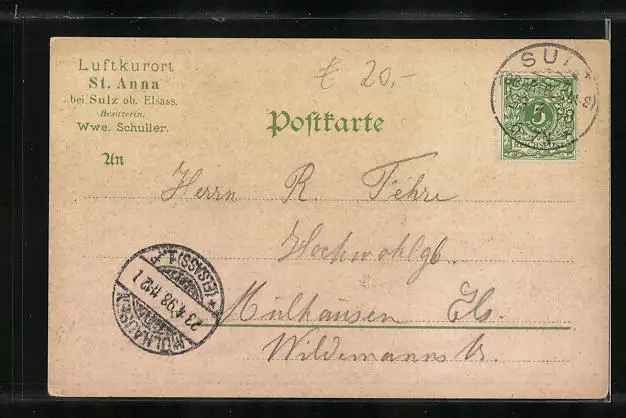 Luftkurort
St. Anna
bei Sulz ob. Elsass.
Besitzerin:
Wwe. Schuller.
€ 20,-
Postkarte
SUL
5
REICHSPOST
An
Herrn R. Fehre
Hochwohlgb.
Mülhausen Els.
Wildemanns
MÜLHAUSEN
(ELSASS)
23 4 98 11-12 V.